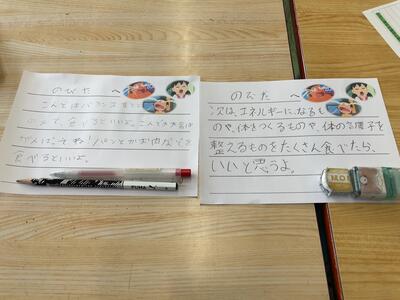 のびた へ
こんどはバランスよく
食べるといいよ。こんどの大会は
がんばってね！パンとかお肉などを
食べるといいよ。
のびた へ
次は、エネルギーになるも
のや、体をつくるものや、体の調子を
整えるものをたくさん食べたら、
いいと思うよ。
MONO